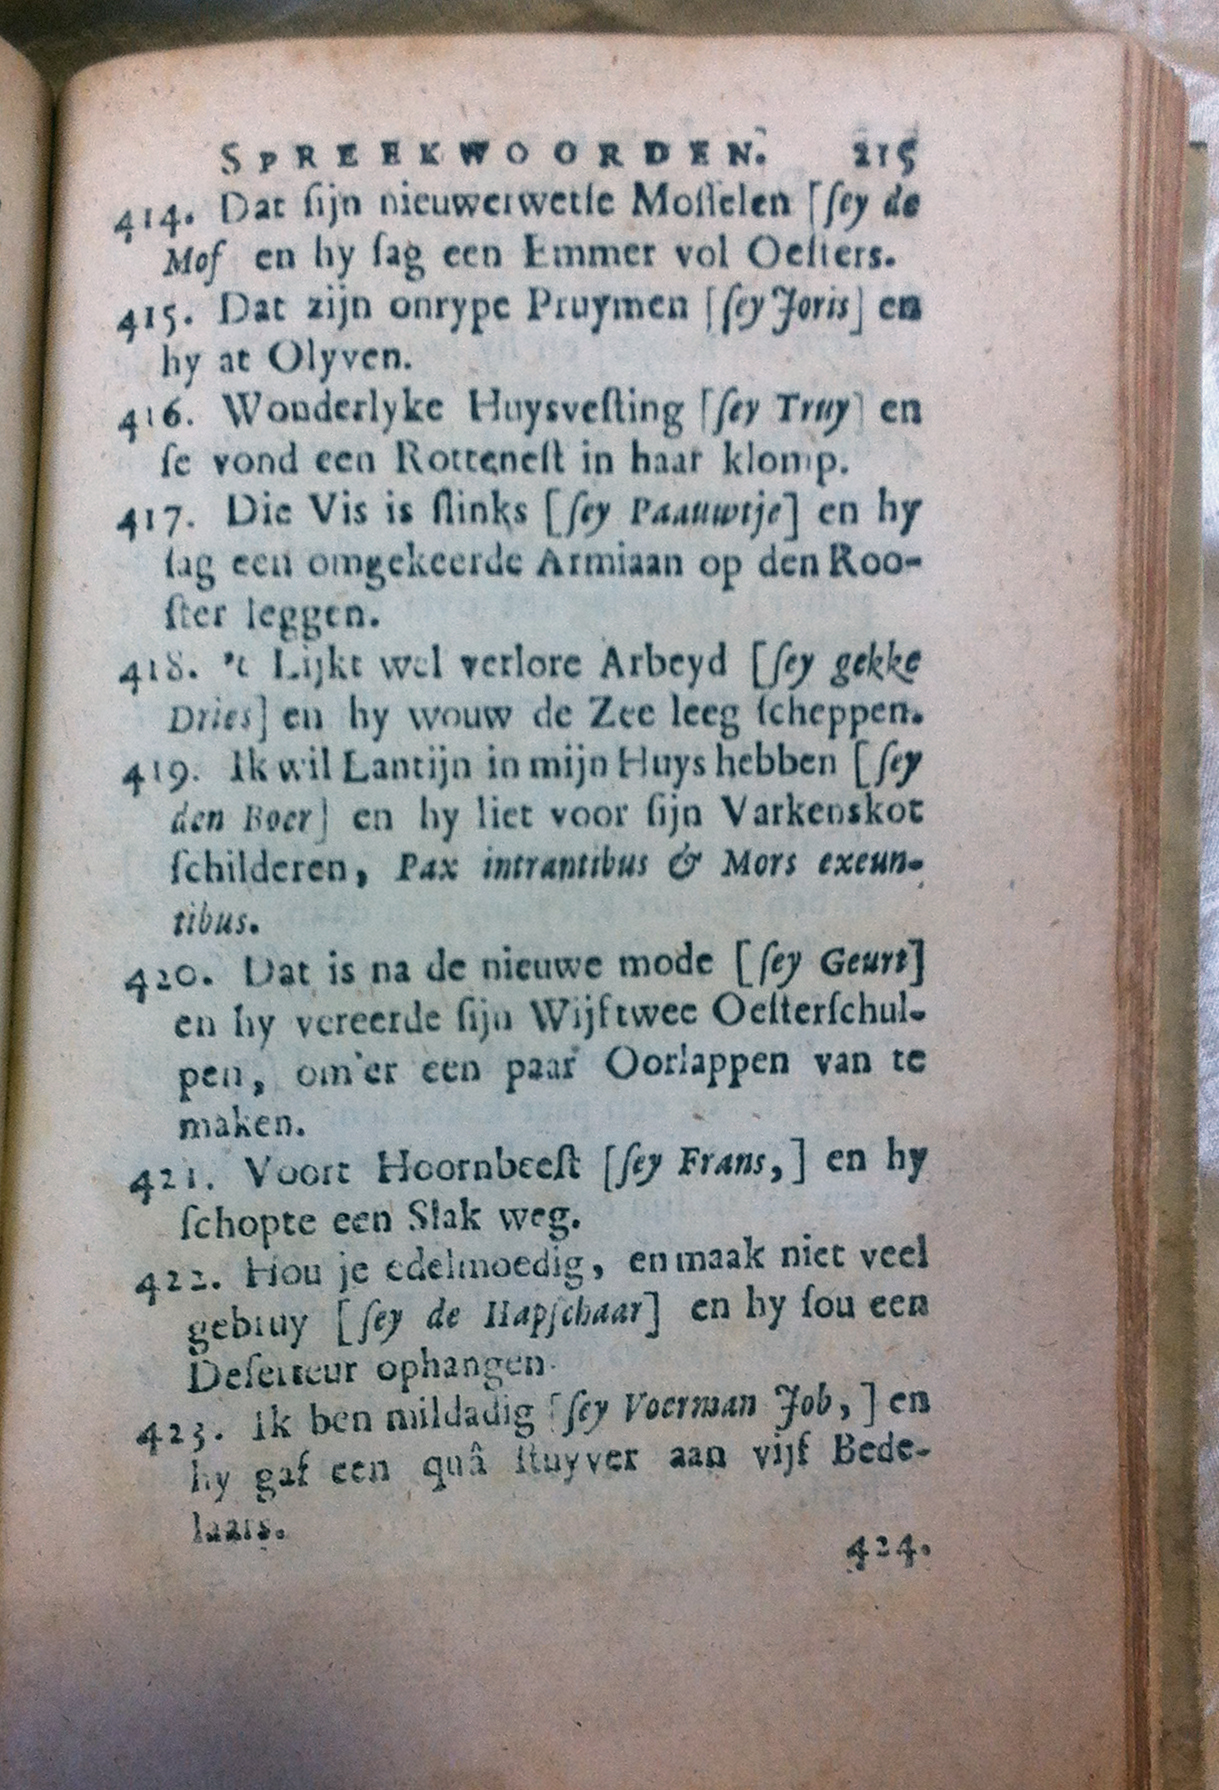 SPREEKWOORDEN. 215
414. Dat ſijn nieuwerwetſe Moſſelen [ſey de
Mof en hy ſag een Emmer vol Oeſters.
415. Dat zijn onrype Pruymen [ſey Joris] en
hy at Olyven.
416. Wonderlyke Huysveſting [ſey Truy] en
ſe vond een Rotteneſt in haar klomp.
417. Die Vis is ſlinks [ſey Paauwtje] en hy
ſag een omgekeerde Armiaan op den Roo-
ſter leggen.
418. 't Lijkt wel verlore Arbeyd [ſey gekke
Dries] en hy wouw de Zee leeg ſcheppen.
419. Ik wil Lantijn in mijn Huys hebben [ſey
den Boer] en hy liet voor ſijn Varkenskot
ſchilderen, Pax intrantibus & Mors exeun-
tibus.
420. Dat is na de nieuwe mode [ſey Geurt]
en hy vereerde ſijn Wijf twee Oeſterſchul-
pen, om'er een paar Oorlappen van te
maken.
421. Voort Hoornbeeſt [ſey Frans,] en hy
ſchopte een Slak weg.
422. Hou je edelmoedig, en maak niet veel
gebruy [ſey de Hapſchaar] en hy ſou een
Deſerteur ophangen.
423. Ik ben mildadig [ſey Voerman Job,] en
hy gaf een quâ ſtuyver aan vijf Bede-
laars.
424.